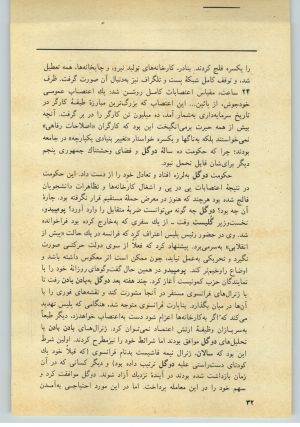 را یکسره فلج کردند. بنادر، کارخانه‌های تولید نیرو، و چاپخانه‌ها، همه تعطیل
شد، و توقف کامل شبکهٔ پست و تلگراف نیز به‌دنبال آن صورت گرفت. ظرف
۲۴ ساعت، مقیاس اعتصابات کامل روشن شد: یك اعتصاب عمومی
خودجوش، از پائین... این اعتصاب که بزرگ‌ترین مبارزهٔ طبقهٔ کارگر در
تاریخ سرمایه‌داری به‌شمار آمد، ده میلیون تن کارگر را در بر گرفت. آنچه
بیش از همه حیرت برمی‌انگیخت این بود که کارگران «اصلاحات رفاهی»
نمی‌خواستند بلکه به‌ناگها و یکسره خواستار «تغییر بنیادی یکپارچه» در جامعه
بودند؛ چرا که حکومت ده سالهٔ دوگل و فضای وحشتناك جمهوری پنجم
دیگر برای‌شان قابل تحمل نبود.
حکومت دوگل به‌لرزه افتاد و تعادل خود را از دست داد. این حکومت
در نتیجهٔ اعتصابات پی در پی و اشغال کارخانه‌ها و تظاهرات دانشجویان
فالج شده بود هرچند که هنوز در معرض حملهٔ مستقیم قرار نگرفته بود. چارهٔ
آن چه بود؟ دوگل چه گونه می‌توانست ضربهٔ متقابل را وارد آورد؟ پومپیدو،
نخست‌وزیر گلیست وقت، از یك سفری که به‌خارج کرده بود فراخوانده
شد. وی در حضور رئیس پلیس اعتراف کرد که فرانسه در یك حالت «پیش از
انقلابی» به‌سرمی‌برد. پیشنهاد کرد که فعلاً از سوی دولت حرکتی صورت
نگیرد و تحریکی به‌عمل نیاید، چون ممکن است اثر معکوس داشته باشد و
اوضاع را وخیم‌تر کند. پومپیدو در همین حال گفت‌وگوهای روزانهٔ خود را با
نمایندگان حزب کمونیست آغاز کرد. چند هفته بعد دوگل به‌بادن بادن رفت تا
با ژنرال‌های فرانسوی مستقر در آنجا مشورت کند و نقشه‌های فوری را با
آن‌ها در میان بگذارد. بنابارت فرانسوی متوجه شد، هنگامی که پلیس تهدید
می‌کند که «اگر به‌ما اعزام شود دست به‌اعتصاب خواهد زد، دیگر طبعاً
به‌سربازان وظیفهٔ ارتش اعتماد نمی‌توان کرد. ژنرال‌های بادن بادن با
تحلیل‌های دوگل موافق بودند اما شرائط خود را نیز مطرح کردند. اولین شرط
این بود که سالان، ژنرال نیمه فاشیست بدنام فرانسوی (که قبلاً خود یك
کودتای دست‌راستی علیه دوگل ترتیب داده بود) و دیگر کسانی که در آن
زمان بازداشت شده بودند در آیندهٔ نزدیك آزاد شوند. دوگل موافقت کرد و
سهم خود را در این معامله پرداخت. اما در این مورد احتیاجی به‌آمدن
۳۲